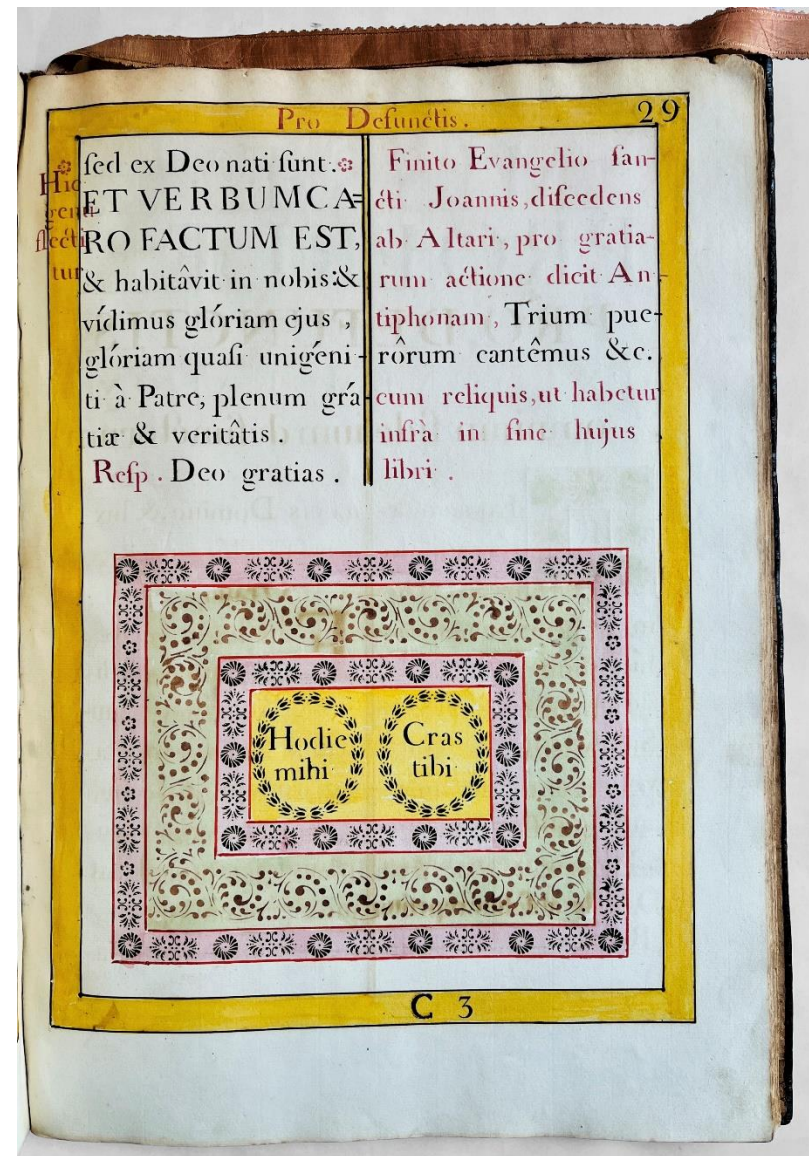 Pro Defunctis.
29
Hic
genu
flecti
tur
ſed ex Deo nati ſunt.
ET VERBUM CA=
RO FACTUM EST,
& habitâvit in nobis: &
vídimus glóriam ejus,
glóriam quaſi unigéni-
ti à Patre, plenum grá-
tiæ & veritâtis.
Reſp. Deo gratias.
Finito Evangelio ſan-
cti Joannis, diſcedens
ab Altari, pro gratia-
rum actione dicit An-
tiphonam, Trium pue-
rôrum cantêmus &c.
cum reliquis, ut habetur
infrà in fine hujus
libri.
Hodie
mihi
Cras
tibi
C 3